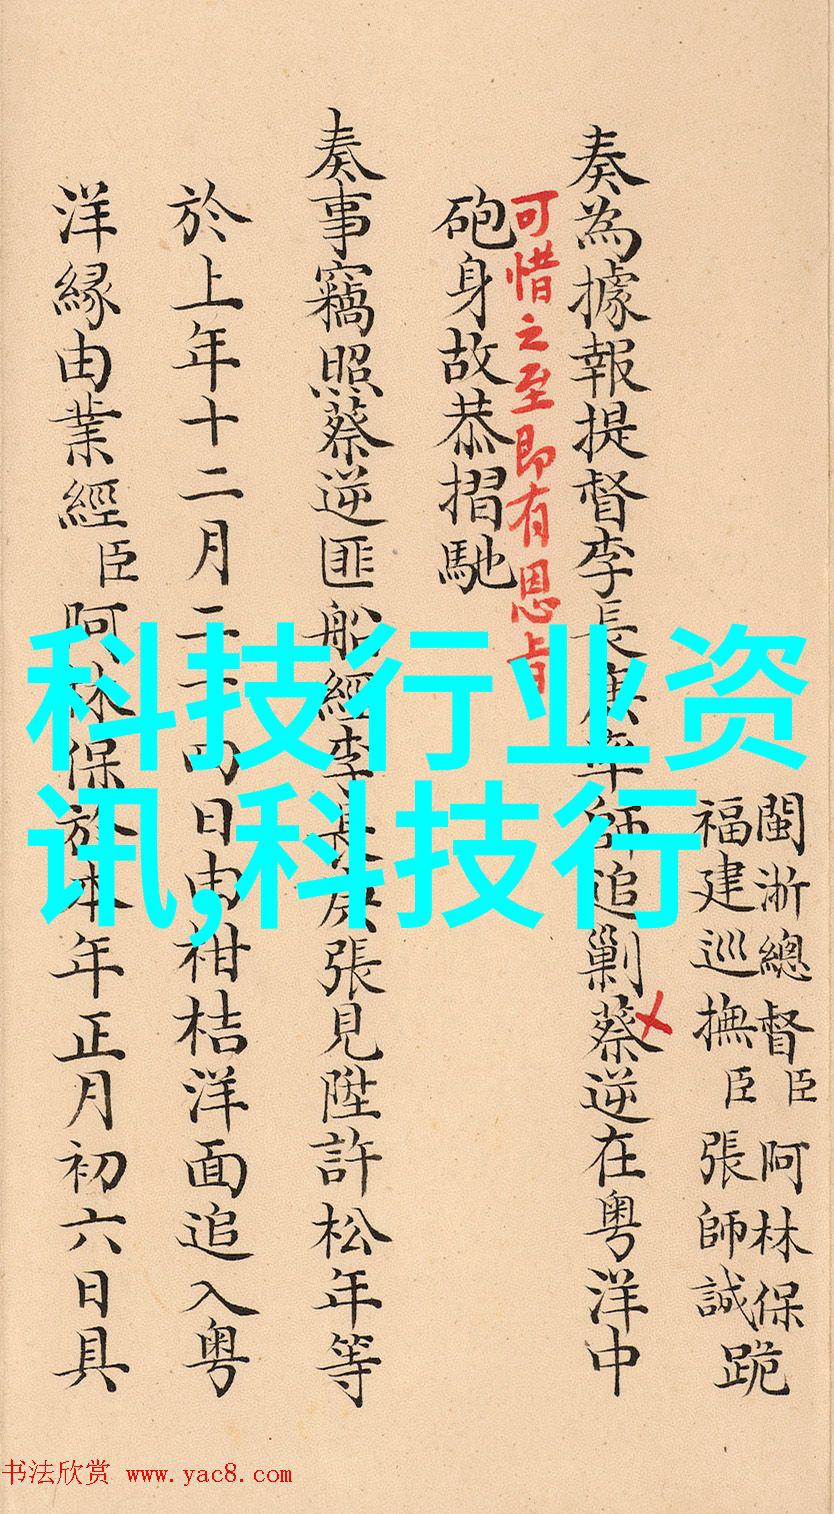 閩浙總督臣阿林保
福建巡撫臣張師誠
跪
奏為據報提督李長庚率師追剿蔡逆在粤洋中
可惜之至即有恩旨
砲身故恭摺馳
奏事竊照蔡逆匪船經李長庚張見陞許松年等
於上年十二月二十四日由柑桔洋面追入粤
洋緣由業經臣阿林保於本年正月初六日具
科技行业资
讯,科技行
书法欣赏 www.yac8.com